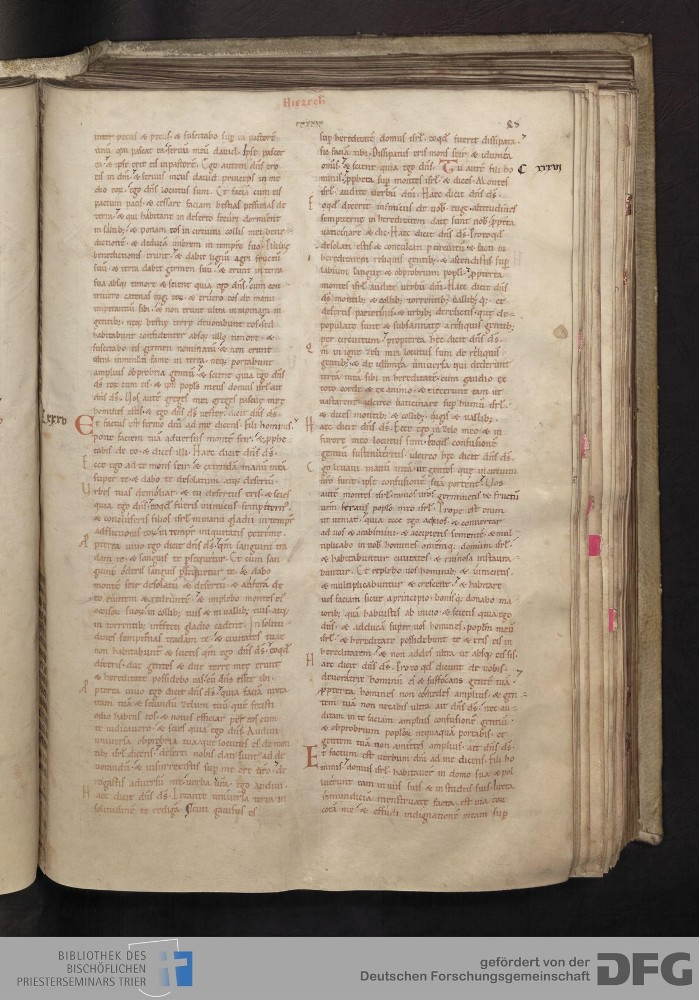 Hiezech
inter pecus & pecus. & suscitabo sup ea pastorē
unū. qui pascat ea seruū meū dauid. Ipse pascet
ea. & ipse erit eis in pastorē. Ego autem dns ero
eis in dm̄. & seruus meus dauid princeps in me
dio eoȝ. ego dns locutus sum. Et faciā cum eis
pactum pacis. & cessare faciam bestias pessimas de
terra. & qui habitant in deserto securi dormient
in saltib;. & ponam eos in circuitu collis mei bene
dictionē. & deducā imbrem in tempore suo. pluuie
benedictionis erunt. & dabit lignū agri fructū
suū. & terra dabit germen suū. & erunt in terra
sua absq; timore. & scient quia ego dns. cum con
triuero catenas iugi eoȝ. & eruero eos de manu
imperantiū sibi. & non erunt ultra in rapinam in
gentib;. neq; bestie terre deuorabunt eos. sed
habitabunt confidenter absq; ullo timore. &
suscitabo eis germen nominatū. & non erunt
ultra inminuti fame in terra. neq; portabunt
amplius obprobriū gentiū. & scient quia ego dns
ds eoȝ cum eis. & ipsi popls meus domus isrl. ait
dns ds. Uos autē greges mei greges pascue meę
homines estis. & ego dns ds uester. dicit dns ds.
lxxxv
Et factus est sermo dni ad me dicens. Fili hominis
pone faciem tuā aduersus montē seir. & pphe
tabis de eo. & dices illi. Haec dicit dns ds.
Ecce ego ad te mons seir. & extendā manū meā
super te. & dabo te desolatum atq; desertū.
Urbes tuas demoliar. & tu desertus eris. & scies
quia ego dns. eoqd fueris inimicus sempiternus.
& concluseris filios isrl in manus gladii in tempr̄
adflictionis eoȝ. in tempr̄ iniquitatis extreme.
Ppterea uiuo ego dicit dns ds. qm̄ sanguini tra
dam te. & sanguis te psequetur. Et cum san
guinē oderis sanguis psequetur te. & dabo
montē seir desolatū & desertū. & auferā de
eo euntem & redeuntē. & implebo montes ei
occisoȝ suoȝ. in collib; tuis & in uallib; tuis. atq;
in torrentib; interfecti gladio cadent. In solitu
dines sempiternas tradam te. & ciuitates tuae
non habitabunt. & scietis qm̄ ego dns ds. eoqd
dixeris. due gentes & due terre meę erunt
& hereditate possidebo eas. cū dns esset ibi.
Ppterea uiuo ego dicit dns ds. quia faciā iuxta
iram tuā & secundū zelum tuū quē fecisti
odio habens eos. & notus efficiar per eos cum
te iudicauero. & scies quia ego dns. Audiui
uniuersa obprobria tua que locutus es de mon
tib; isrl dicens. deserti nobis dati sunt ad de
uorandū. & insurrexistis sup me ore uro. & de
rogastis aduersū me uerba ura. ego audiui.
Haec dicit dns ds. Letante uniuersa terra in
solitudinē te redigā. Sicut gauisus es
sup hereditatē domus isrl. eoqd fuerit dissipata.
sic faciā tibi. Dissipatus eris mons seir & idumea
omnis. & scient quia ego dns. Tu autē fili ho
xxxvi
minis ppheta sup montes isrl. & dices. Montes
isrl audite uerbū dni. Haec dicit dns ds.
Eoqd dixerit inimicus de uob euge altitudines
sempiterne in hereditatem date sunt nob. ppterea
uaticinare & dic. Haec dicit dns ds. Pro eo qd
desolati estis & conculcati p circuitū & facti in
hereditatem reliquis gentib;. & ascendistis sup
labium linguę & obprobrium popli. ppterea
montes isrl audite uerbū dni. Haec dicit dns
ds montib; & collib;. torrentib; uallib; q;. &
desertis parietinis & urbib; derelictis. que de
populate sunt & subsannate a reliquis gentib;
per circuitum. propterea hec dicit dns ds.
Qm̄ in igne zeli mei locutus sum de reliquis
gentib;. & de idumea uniuersa. qui dederunt
terrā meā sibi in hereditatē. cum gaudio &
toto corde & ex animo. & eiecerunt eam ut
uastarent. idcirco uaticinare sup humū isrl.
& dices montib; & collib;. iugis & uallib;.
Haec dicit dns ds. Ecce ego in zelo meo & in
furore meo locutus sum. eoqd confusionē
gentiū sustinueritis. idcirco hęc dicit dns ds.
Ego leuaui manū meā ut gentes que in circuitu
uro sunt. ipse confusionē suā portent. Uos
autē montes isrl. ramos uros germinetis & fructū
urm̄ feratis poplo meo isrl. Prope est enim
ut ueniat. quia ecce ego ad uos. & conuertar
ad uos & arabimini. & accipietis sementē. & mul
tiplicabo in uob homines. omnēq; domum isrl.
& habitabuntur ciuitates. & ruinosa instaura
buntur. Et replebo uos hominib; & iumentis.
& multiplicabuntur & crescent. & habitare
uos faciam sicut a principio. bonisq; donabo ma
iorib;. quā habuistis ab inicio. & scietis quia ego
dns. & adducā super uos homines. poplm̄ meū
isrl. & hereditate possidebunt te & eris eis in
hereditatem. & non addes ultra ut absq; eis sis.
Haec dicit dns ds. Pro eo qd dicunt de uobis.
deuoratrix hominū es & suffocans gentē tuā.
Ppterea homines non comedes amplius. & gen
tem tuā non necabis ultra. ait dns ds. nec au
ditam in te faciam amplius confusionē gentiū.
& obprobrium poploȝ nequaquā portabis. &
gentem tuā non amittes amplius. ait dns ds.
Et factum est uerbum dni ad me dicens. Fili ho
minis. domus isrl habitauer in domo sua. & pol
luerunt eam in uiis suis & in studiis suis. iuxta
inmundiciā menstruatę facta est uia eoȝ
corā me. & effudi indignationē meam sup
BIBLIOTHEK DES
BISCHÖFLICHEN
PRIESTERSEMINARS TRIER
gefördert von der
Deutschen Forschungsgemeinschaft
DFG